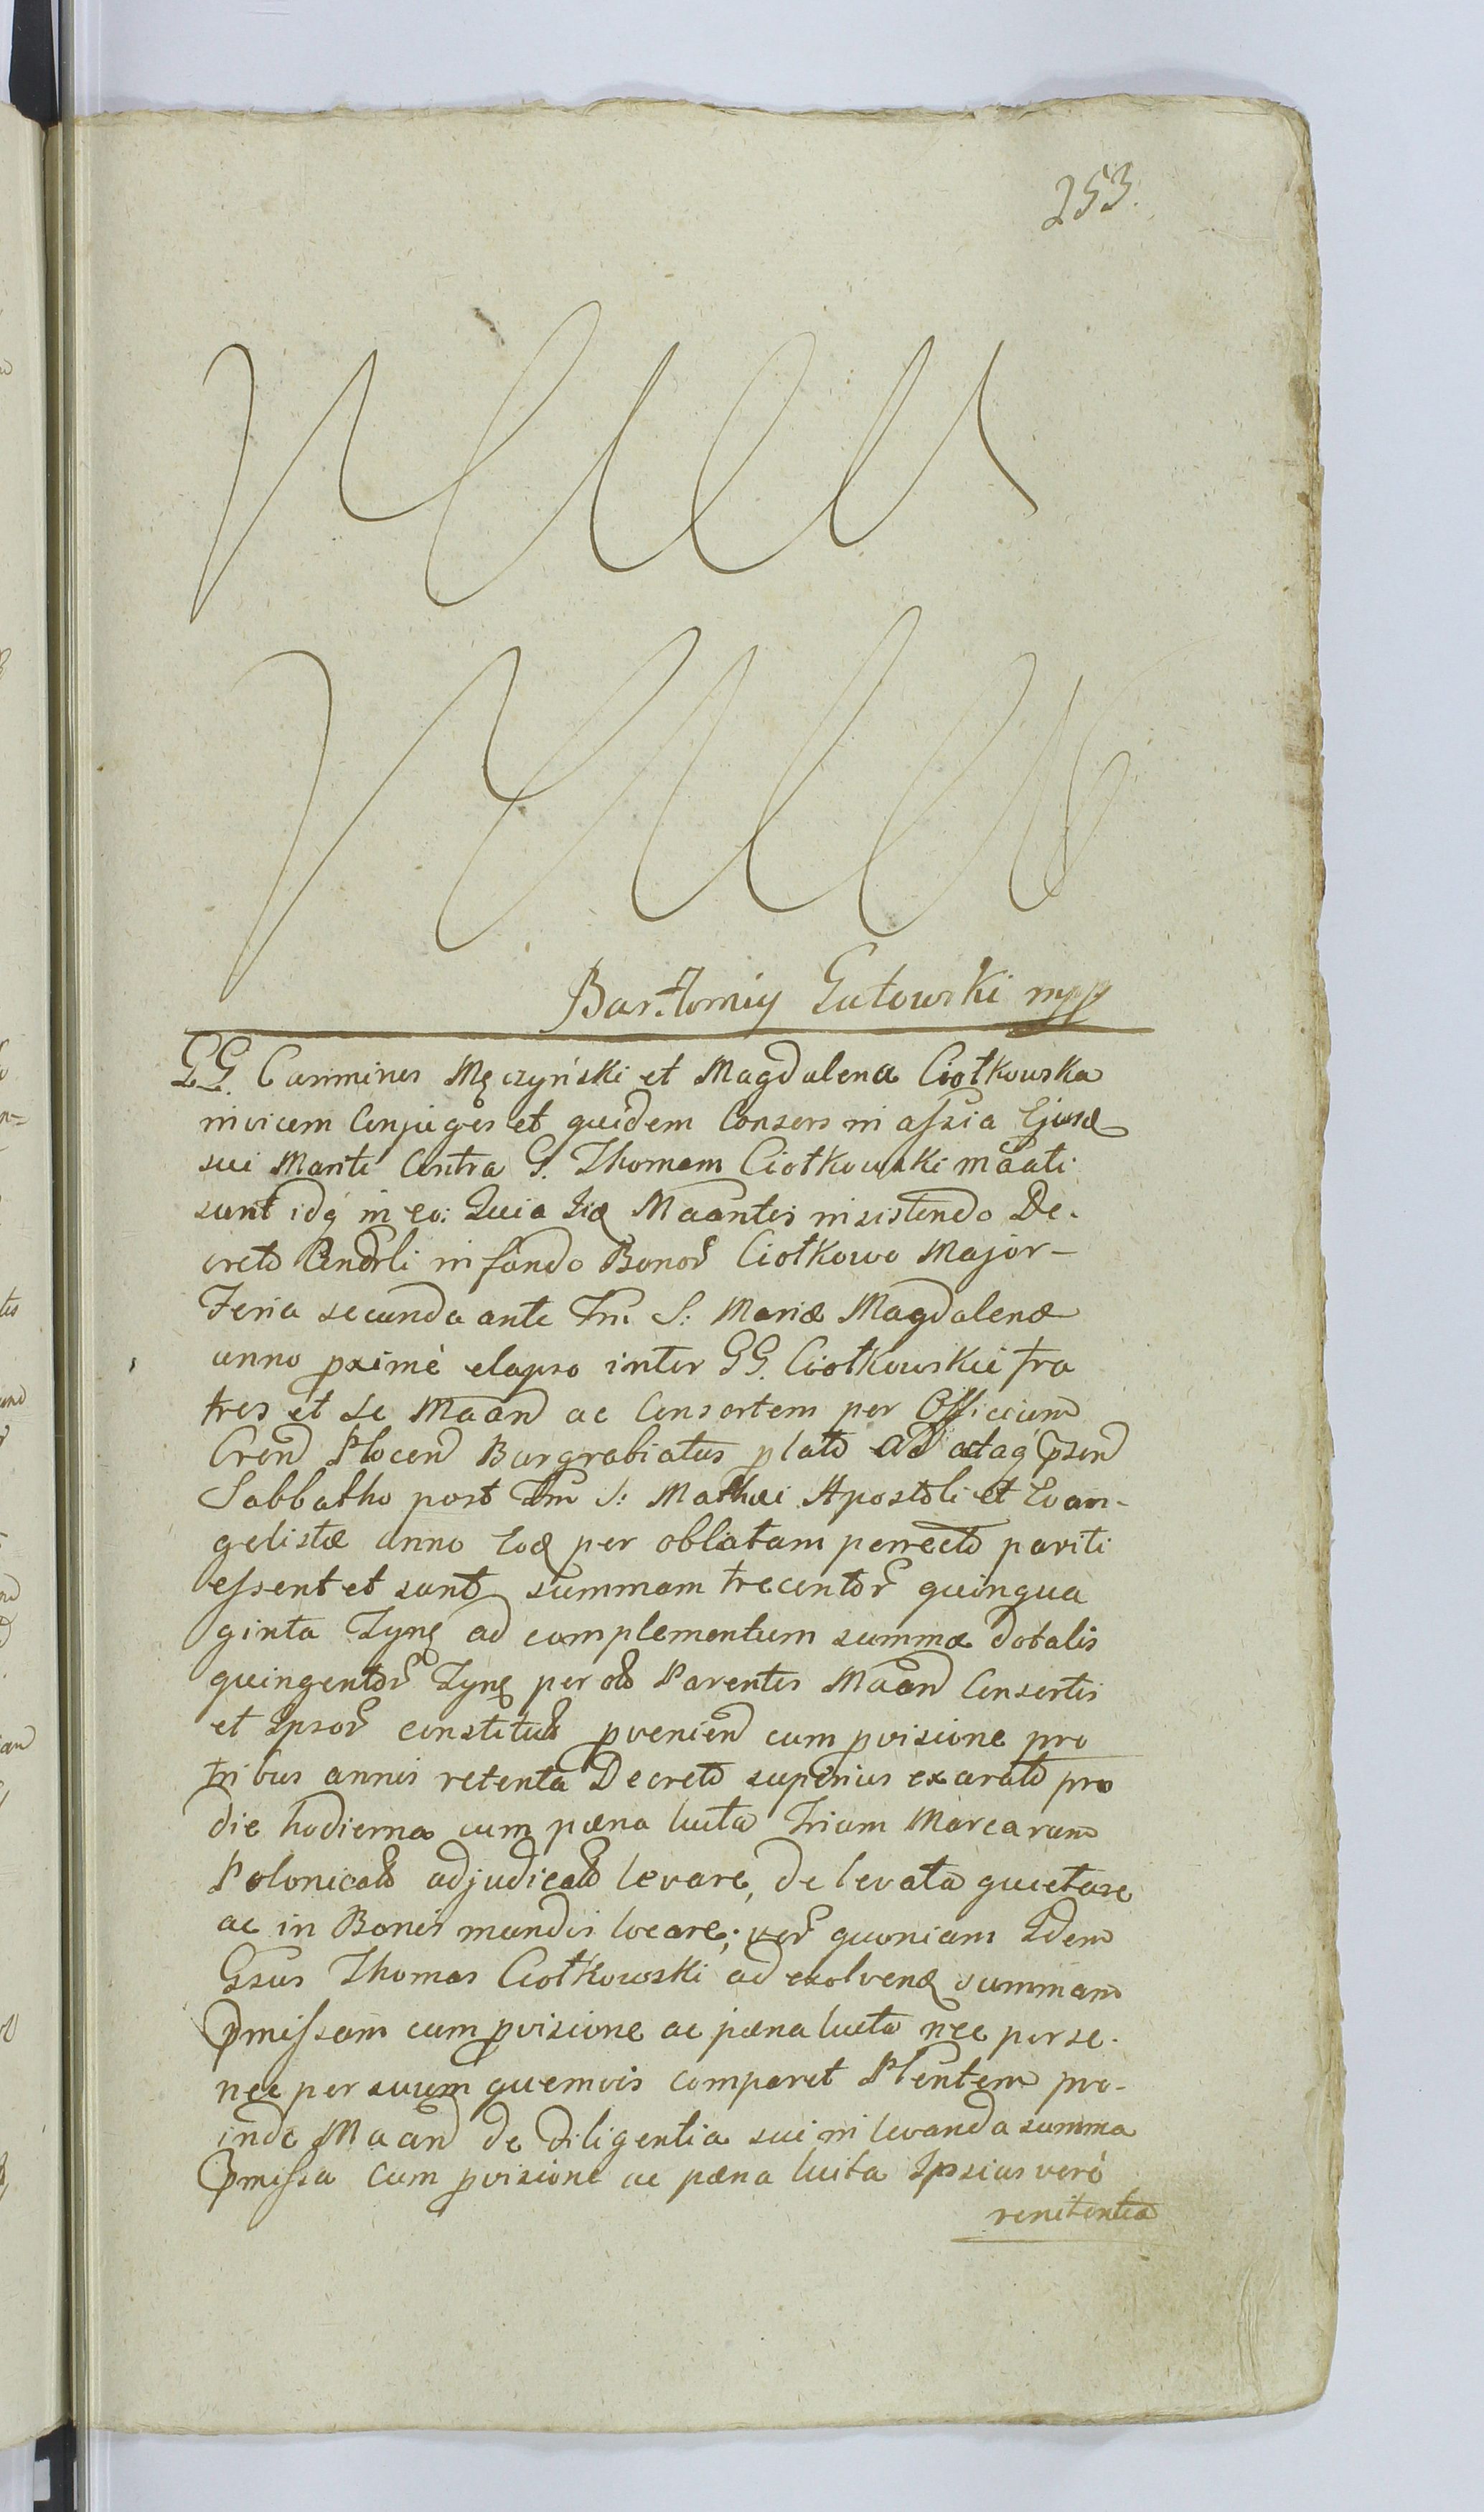 253.
Bartłomiy Gutowski mpp
GG. Casimirus Męczyński et Magdalena Ciołkowska
invicem Conjuges et quidem Consors in assia Ejusd
sui Mariti Contra G. Thomam Ciołkowski mãati
sunt idq in eo: Quia Iid Maantes insistendo De-
creto Condrli in fundo Bonor Ciołkowo Major-
Feria secunda ante Fm S: Mariæ Magdalenæ
anno pximè elapso inter GG. Ciołkowskie fra
tres et se Maan ac Consortem per Officium
Cren Plocen Burgrabiatus plato Ad ataq psen
Sabbatho post Fm S: Mathæi Apostoli et Evan-
gelistæ anno Eod per oblatam porrecto pariti
essent et sunt summam trecentor quinqua
ginta Tynf ad complementum summæ dotalis
quingentor Tynf per ol Parentes Maan Consortis
et Ipsor constitut provenien cum pvisione pro
tribus annis retenta Decreto superius exarato pro
die hodierna cum pæna luita Trium Marcarum
Polonical adjudicat levare, de levata quietare
ac in Bonis mundis locare; ver quoniam Idem
Gsus Thomas Ciołkowski ad exolvend summam
Pmissam cum pvisione ac pæna luita nec per se-
nec per suum quemvis comparet Plentem pro-
inde Maan de diligentia sui in levanda summa
Pmissa cum pvisione ac pæna luita Ipsius verò
renitentia